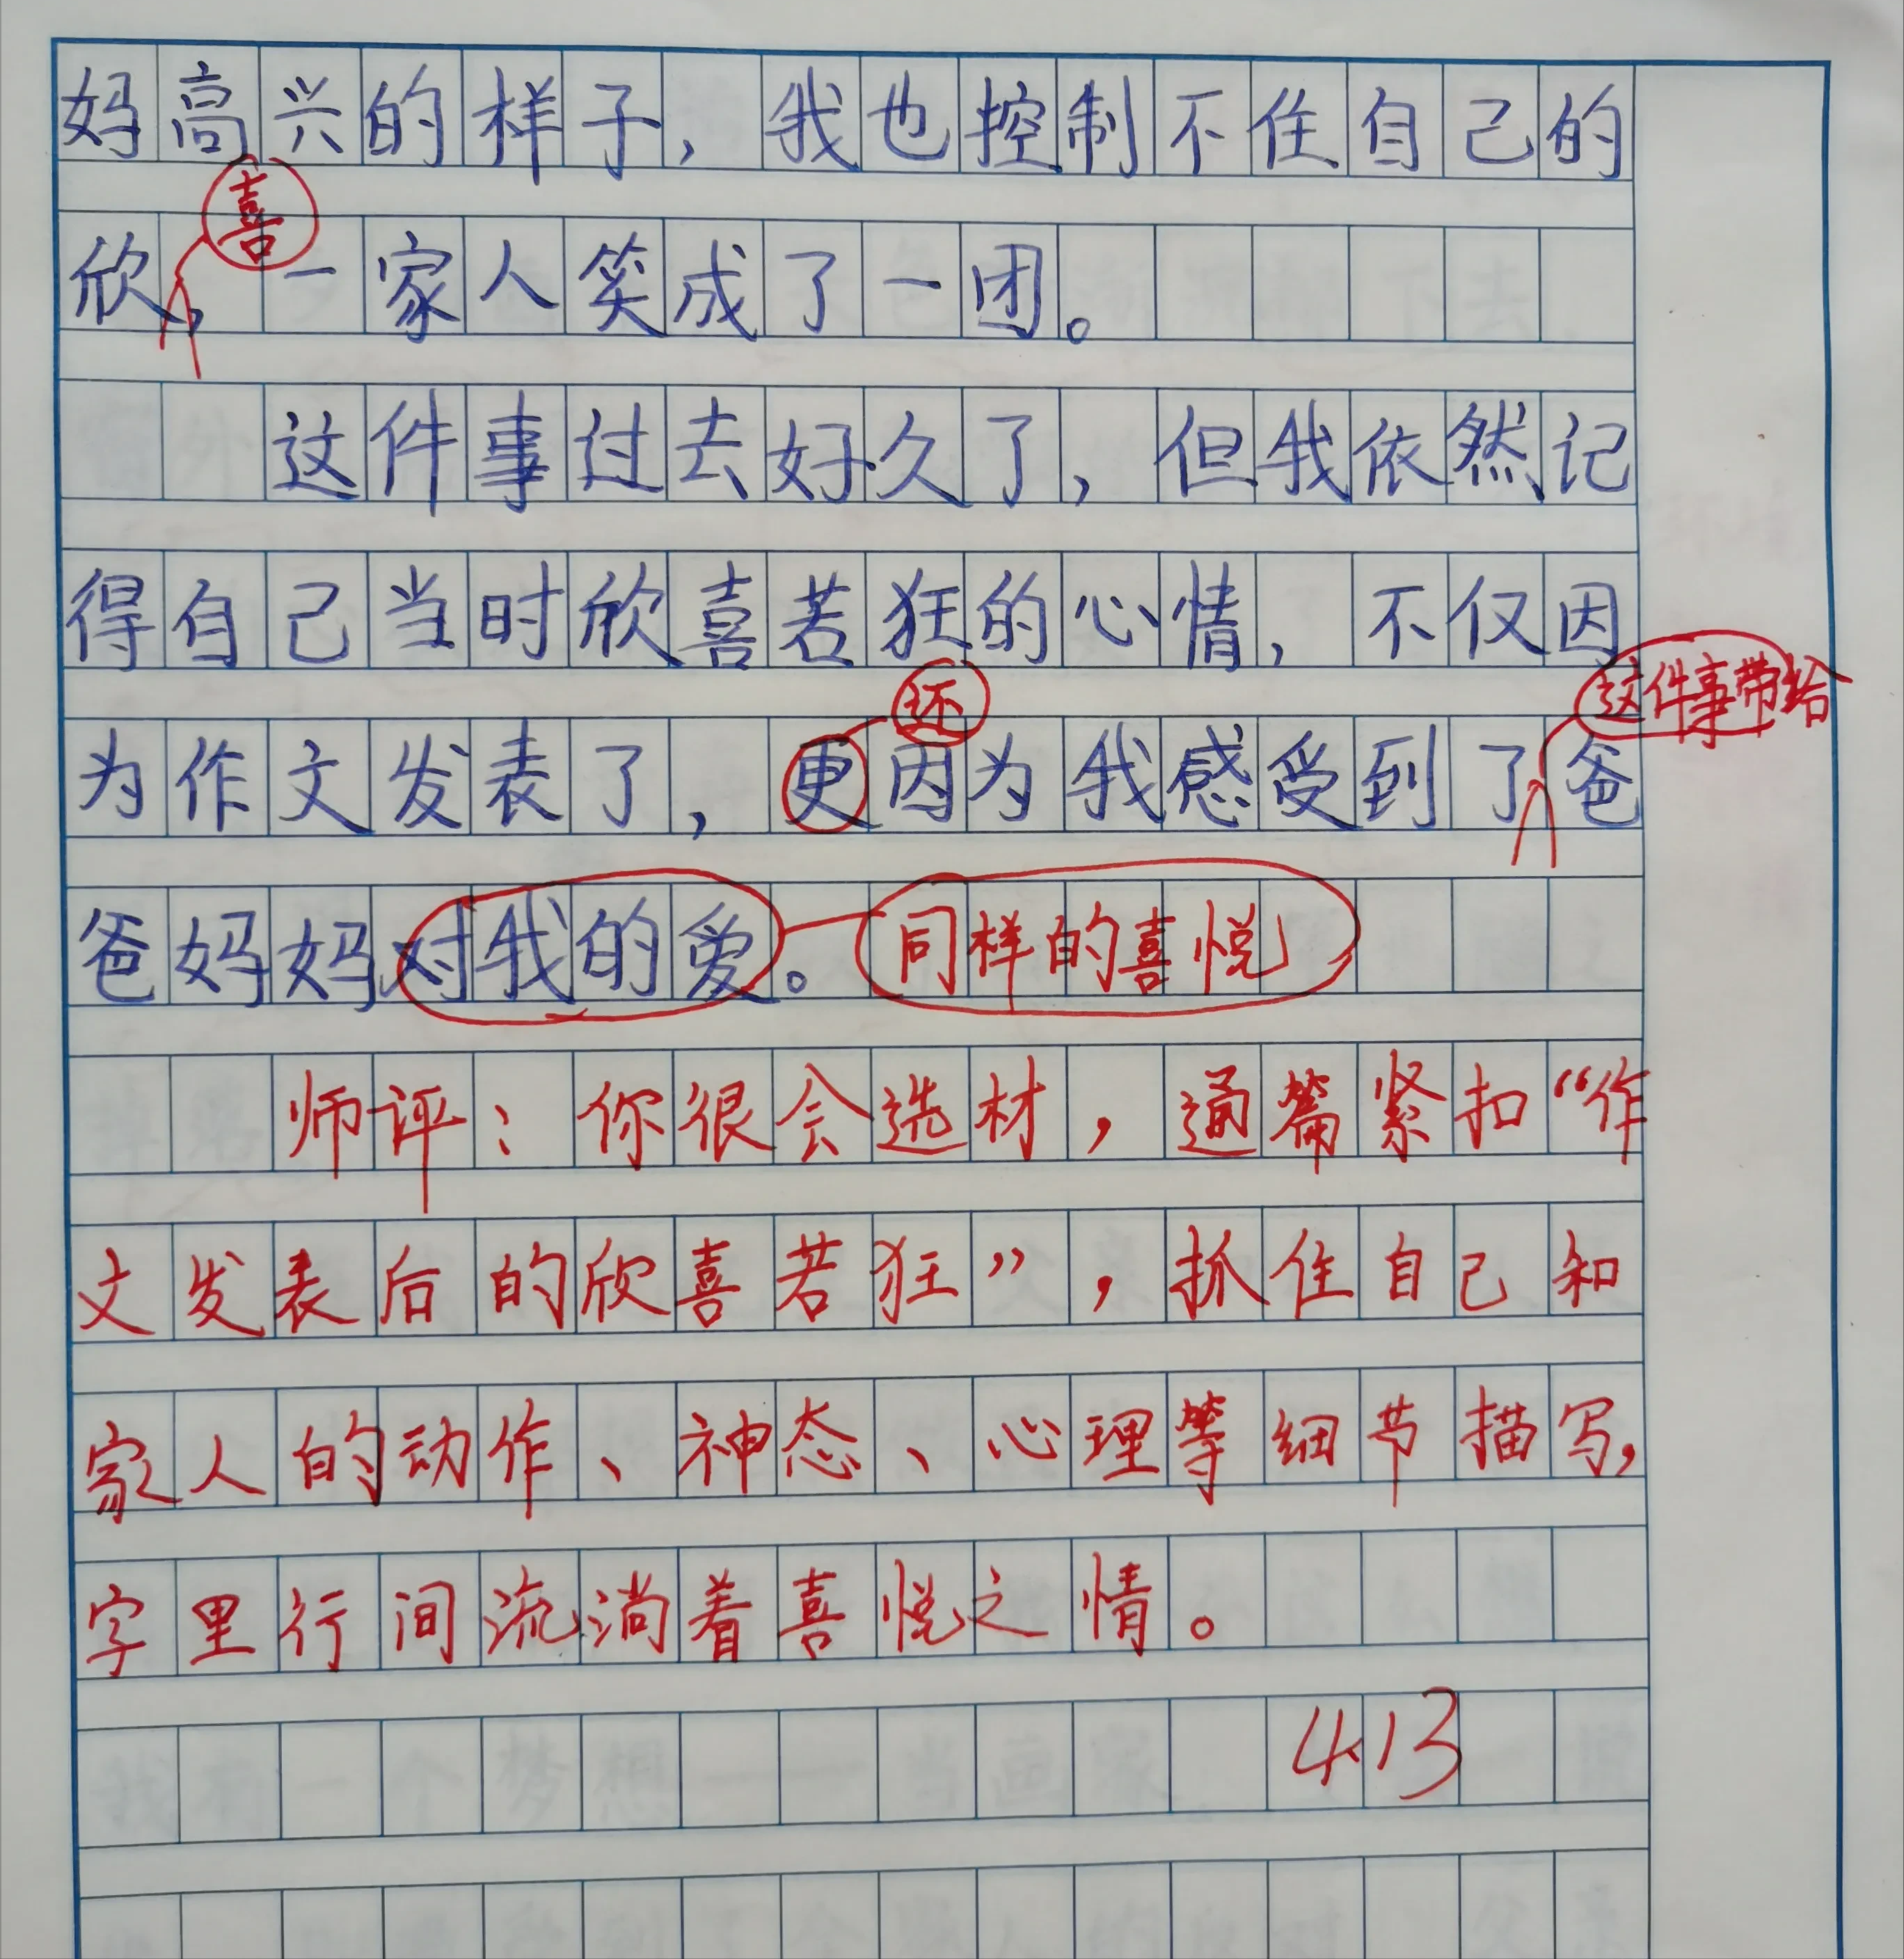 妈高兴的样子，我也控制不住自己的
喜
欣，一家人笑成了一团。
这件事过去好久了，但我依然记
得自己当时欣喜若狂的心情，不仅因
还
这件事带给
为作文发表了，更因为我感受到了爸
爸妈妈对我的爱。同样的喜悦
师评：你很会选材，通篇紧扣“作
文发表后的欣喜若狂”，抓住自己和
家人的动作、神态、心理等细节描写，
字里行间流淌着喜悦之情。
4.13